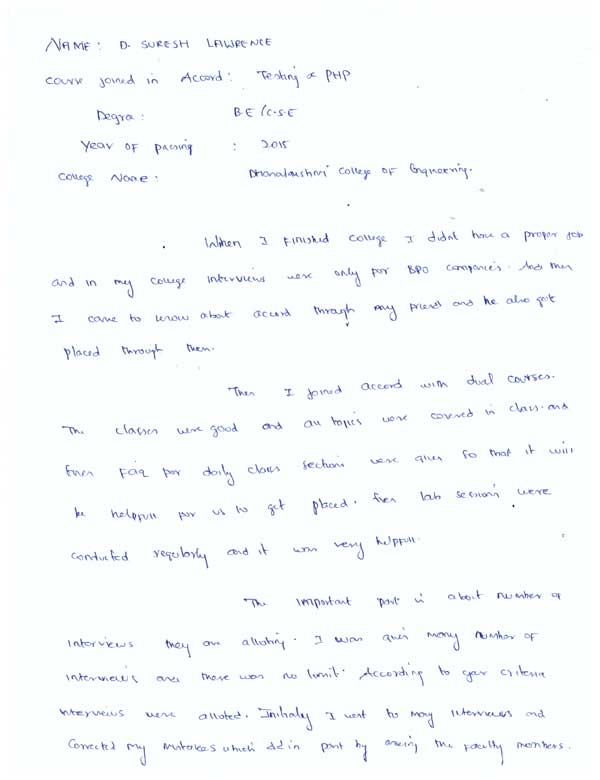 NAME: D. SURESH LAWRENCE
Course joined in Accord: Testing & PHP
Degra: B.E/C.S.E
Year of passing : 2015
College Name: Dhanalakshmi College of Engineering.
When I finished college I didnt have a proper job
and in my college interviews were only for BPO companies. And then
I came to know about accord through my friend and he also got
placed through them.
Then I joined accord with dual courses.
The classes were good and all topics were covered in class and
Even FAQ for daily class section were given so that it will
be helpfull for us to get placed. Even lab sessions were
conducted regularly and it was very helpfull.
The important part is about number of
interviews they are alloting. I was given many number of
interviews and there was no limit. According to criteria
interviews were alloted. Initialy I went to may interviews and
Corrected my mistakes which did in past by the faculty members.